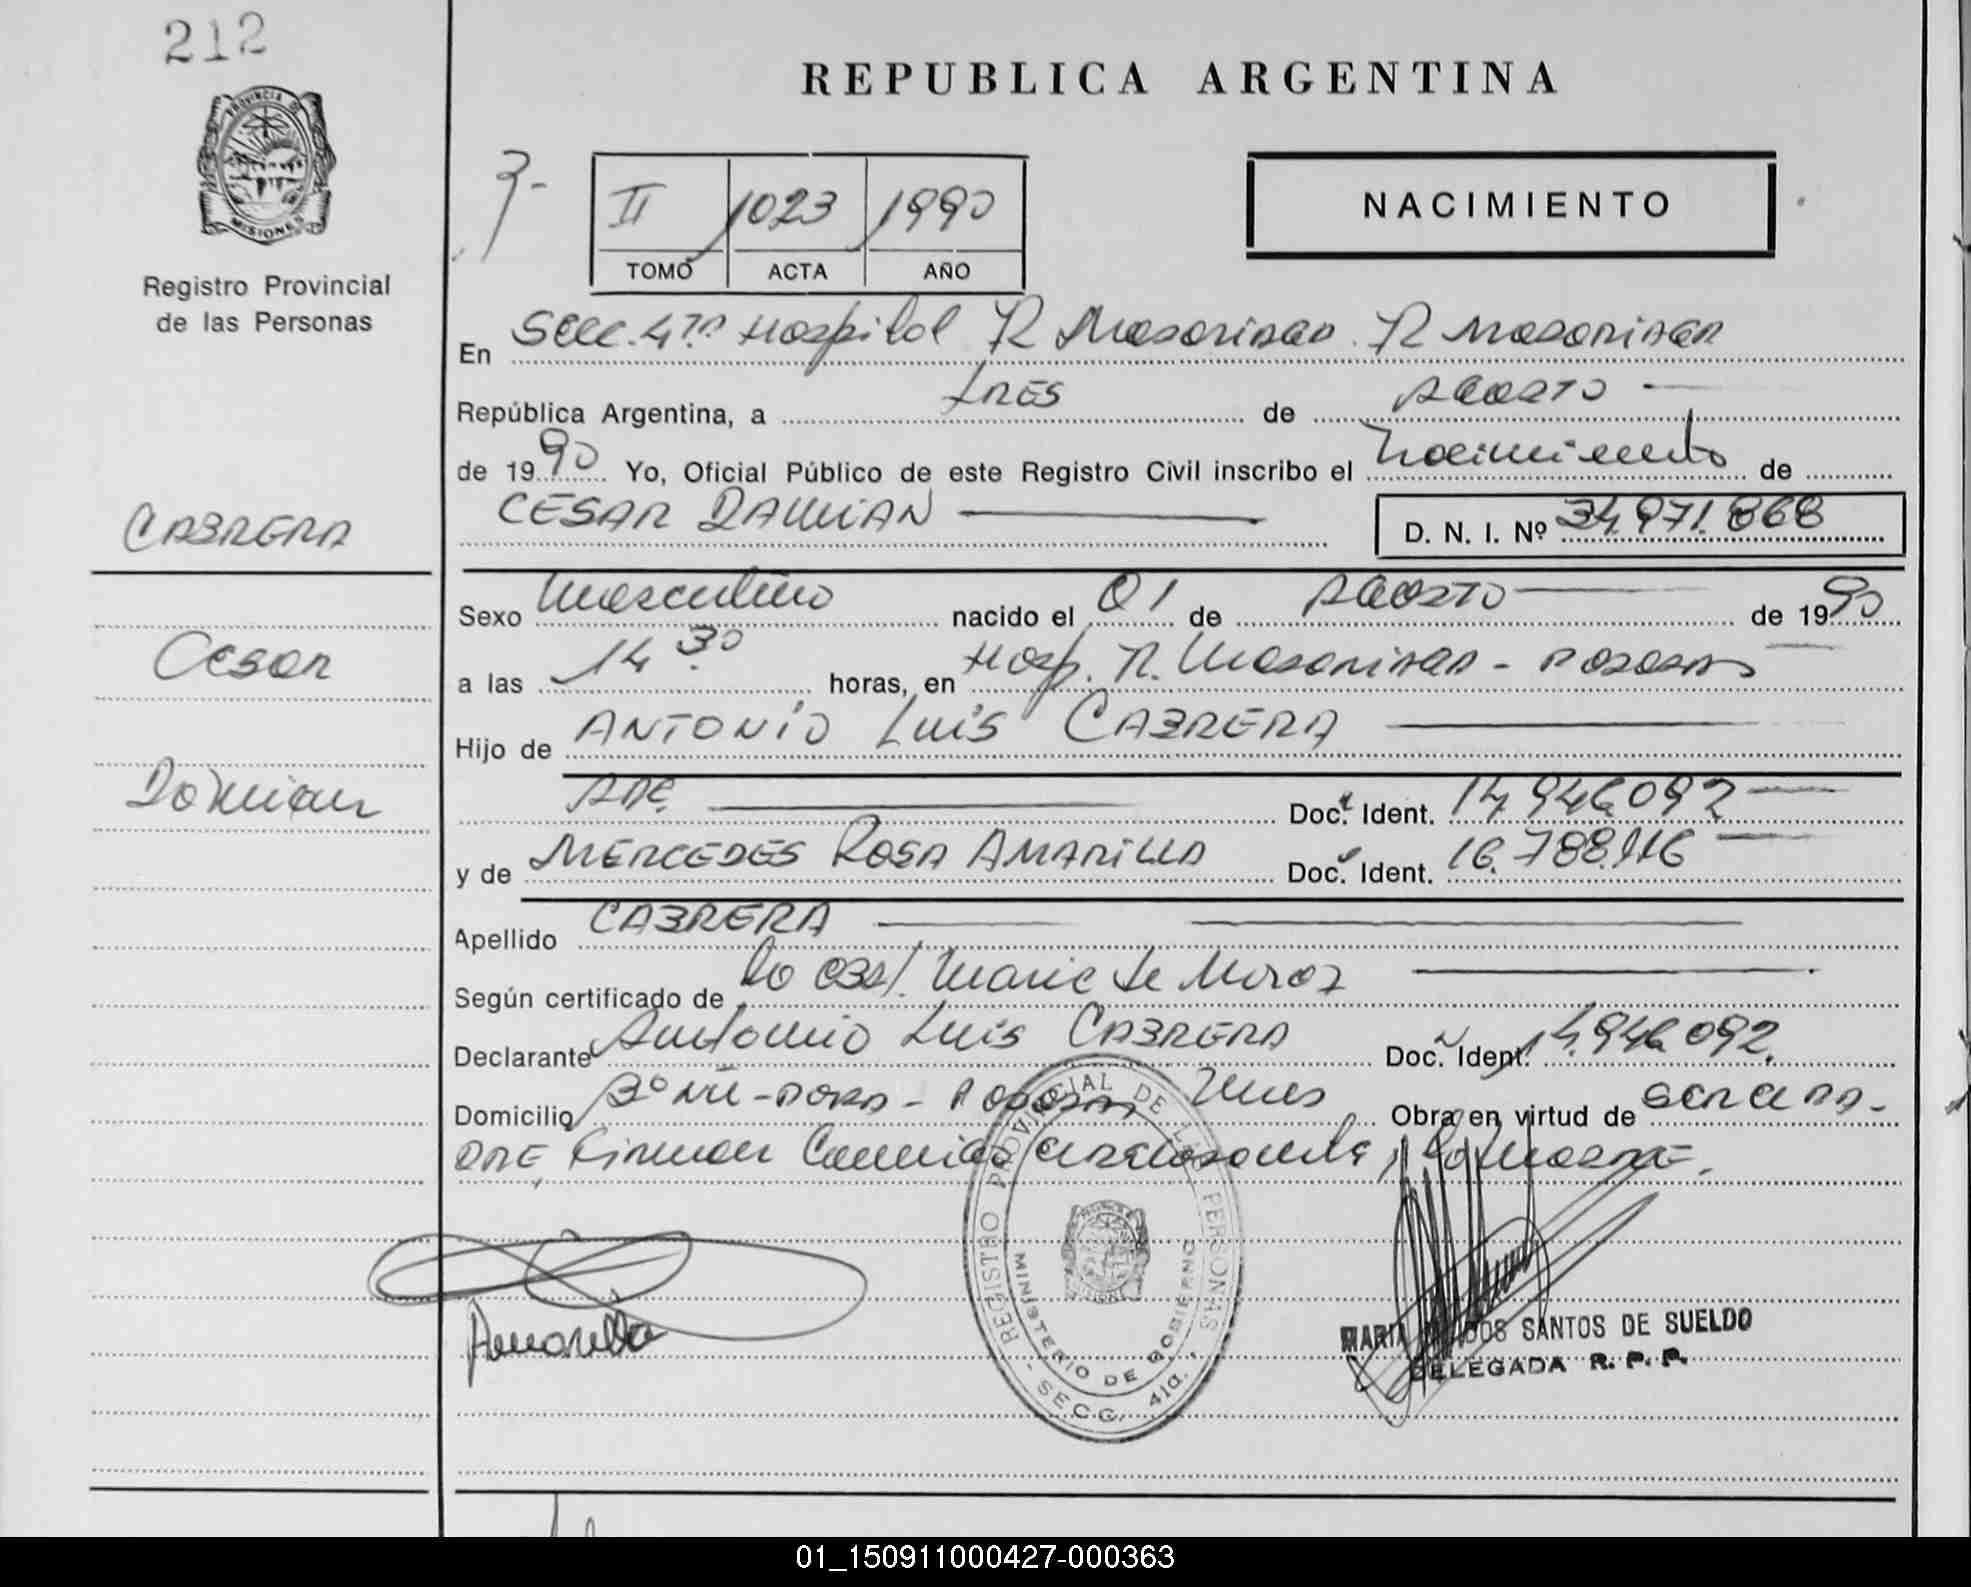 212
PROVINCIA DE
MISIONES
Registro Provincial
de las Personas
CABRERA
Cesar
Damian
REPUBLICA ARGENTINA
II 1023 1990
TOMO ACTA AÑO
NACIMIENTO
En Secc. 4ta Hospital R Madariaga R Madariaga
República Argentina, a tres de Agosto
de 1990 Yo, Oficial Público de este Registro Civil inscribo el Nacimiento de
CESAR DAMIAN D. N. I. Nº 34.971.868
Sexo Masculino nacido el 01 de Agosto de 1990
a las 14 30 horas, en Hosp. R. Madariaga - Posadas
Hijo de ANTONIO LUIS CABRERA
ARG. Doc. Ident. 14.946.092
y de MERCEDES ROSA AMARILLA Doc. Ident. 16.788.116
Apellido CABRERA
Según certificado de la Obst. Marie de
Declarante Antonio Luis CABRERA Doc. Ident. 14.946.092
Domicilio Posadas Mnes Obra en virtud de ser el pa-
dre, Firman Conmigo la madre.
Amarilla
REGISTRO PROVINCIAL DE LAS PERSONAS
MINISTERIO DE GOBIERNO
- SECC. 4ta. -
MARIA DOS SANTOS DE SUELDO
DELEGADA R. P. P.
01_150911000427-000363